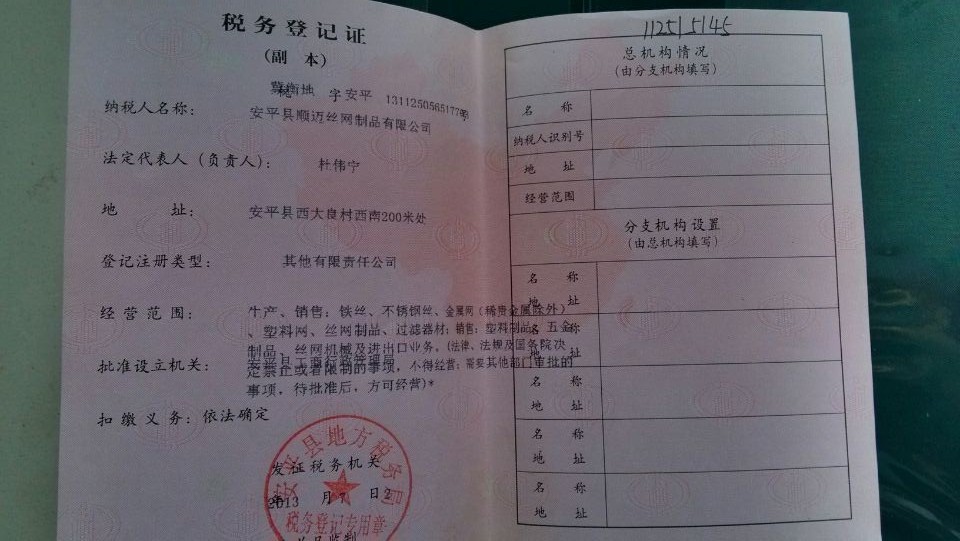 税务登记证
(副 本)
冀衡地税 字 安平 131125056517​7号
纳税人名称：
安平县顺迈丝网制品有限公司
法定代表人（负责人）：
杜伟宁
地 址：
安平县西大良村西南200米处
登记注册类型：
其他有限责任公司
经营范围：
生产、销售：铁丝、不锈钢丝、金属网（稀贵金属除外）
、塑料网、丝网制品、过滤器材；销售：塑料制品、五金
制品、丝网机械及进出口业务。(法律、法规及国务院决
定禁止或者限制的事项，不得经营；需要其他部门审批的
事项，待批准后，方可经营)*
批准设立机关：
安平县工商行政管理局
扣缴义务：依法确定
安平县地方税务局
发证税务机关
2013 月 日
税务登记专用章
112515145
总机构情况
（由分支机构填写）
名 称
纳税人识别号
地 址
经营范围
分支机构设置
（由总机构填写）
名 称
地 址
名 称
地 址
名 称
地 址
名 称
地 址
名 称
地 址